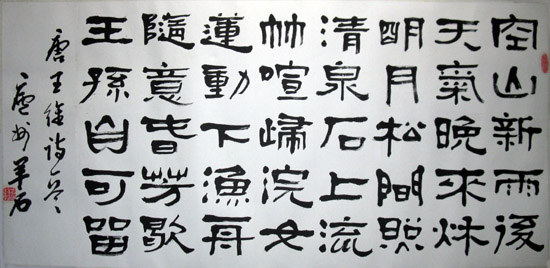 空山新雨後
天氣晚來秋
明月松間照
清泉石上流
竹喧歸浣女
蓮動下漁舟
隨意春芳歇
王孫自可留
唐王維詩一首